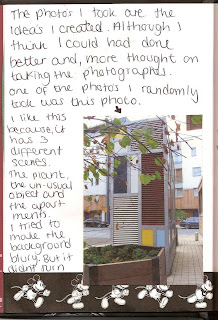 The photo's I took are the
Idea's I created. Although I
think I could had done
better and, more thought on
taking the photographs.
one of the photo's I randomly
took was this photo.
I like this
because, it
has 3
different
scenes.
The plant,
the un-usual
object and
the apart
ments.
I tried to
make the
background
blury. But it
didnt turn